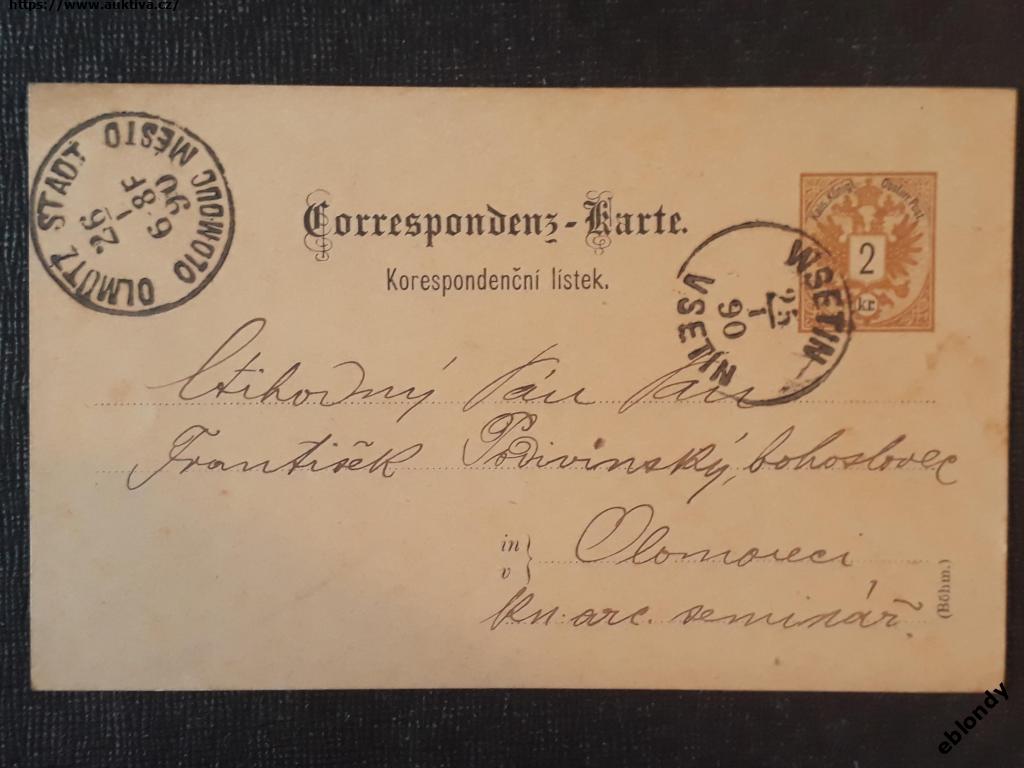 https://www.auktiva.cz/
OLMÜTZ STADT
26
1
6·8F
90
OLOMOUC MĚSTO
Correspondenz-Karte.
Korespondenční lístek.
Kais. Königl. Oesterr. Post.
2
kr.
WSETIN
25
1
90
VSETÍN
Ctihodný Pán Pan
František Podivinský, bohoslovec
in
v
Olomouci
kn. arc. seminář.
(Böhm.)
eblondy